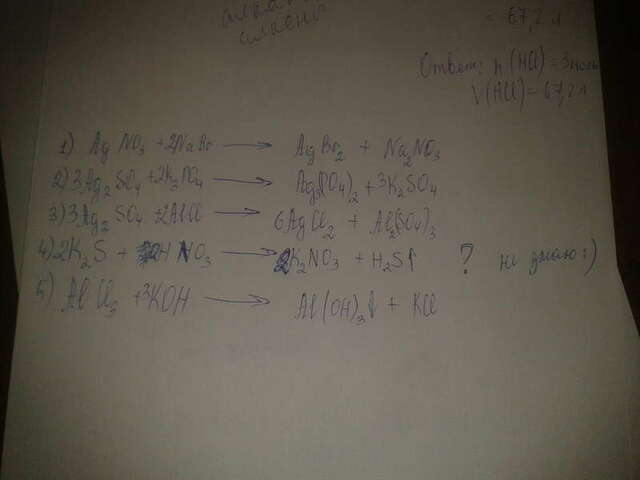 алкены
= 67,2 л
Ответ: n(HCl) = 3 моль
V(HCl) = 67,2 л
1) AgNO3 + 2NaBr → AgBr2 + Na2NO3
2) 3Ag2SO4 + 2K3PO4 → Ag3(PO4)2 + 3K2SO4
3) 3Ag2SO4 + 2AlCl → 6AgCl2 + Al2(SO4)3
4) 2K2S + HNO3 → 2K2NO3 + H2S↑ ? не знаю :)
5) AlCl3 + 3KOH → Al(OH)3↓ + KCl